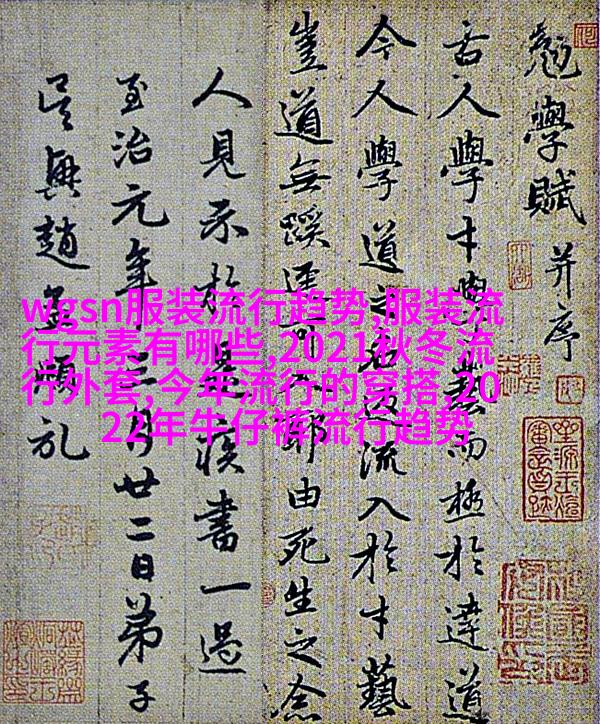 wgsn服装流行趋势,服装流
行元素有哪些,2021秋冬流
行外套,今年流行的穿搭,20
22年牛仔裤流行趋势
勉學賦 并序
古人學才而極於達道
今人學道之流入於才藝
豈道無蹊耶由死生之念
人見示於是疾書一過
至治元年三月廿二日弟子
吳興趙孟頫